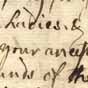 Ladies, &
your ances
unds of the